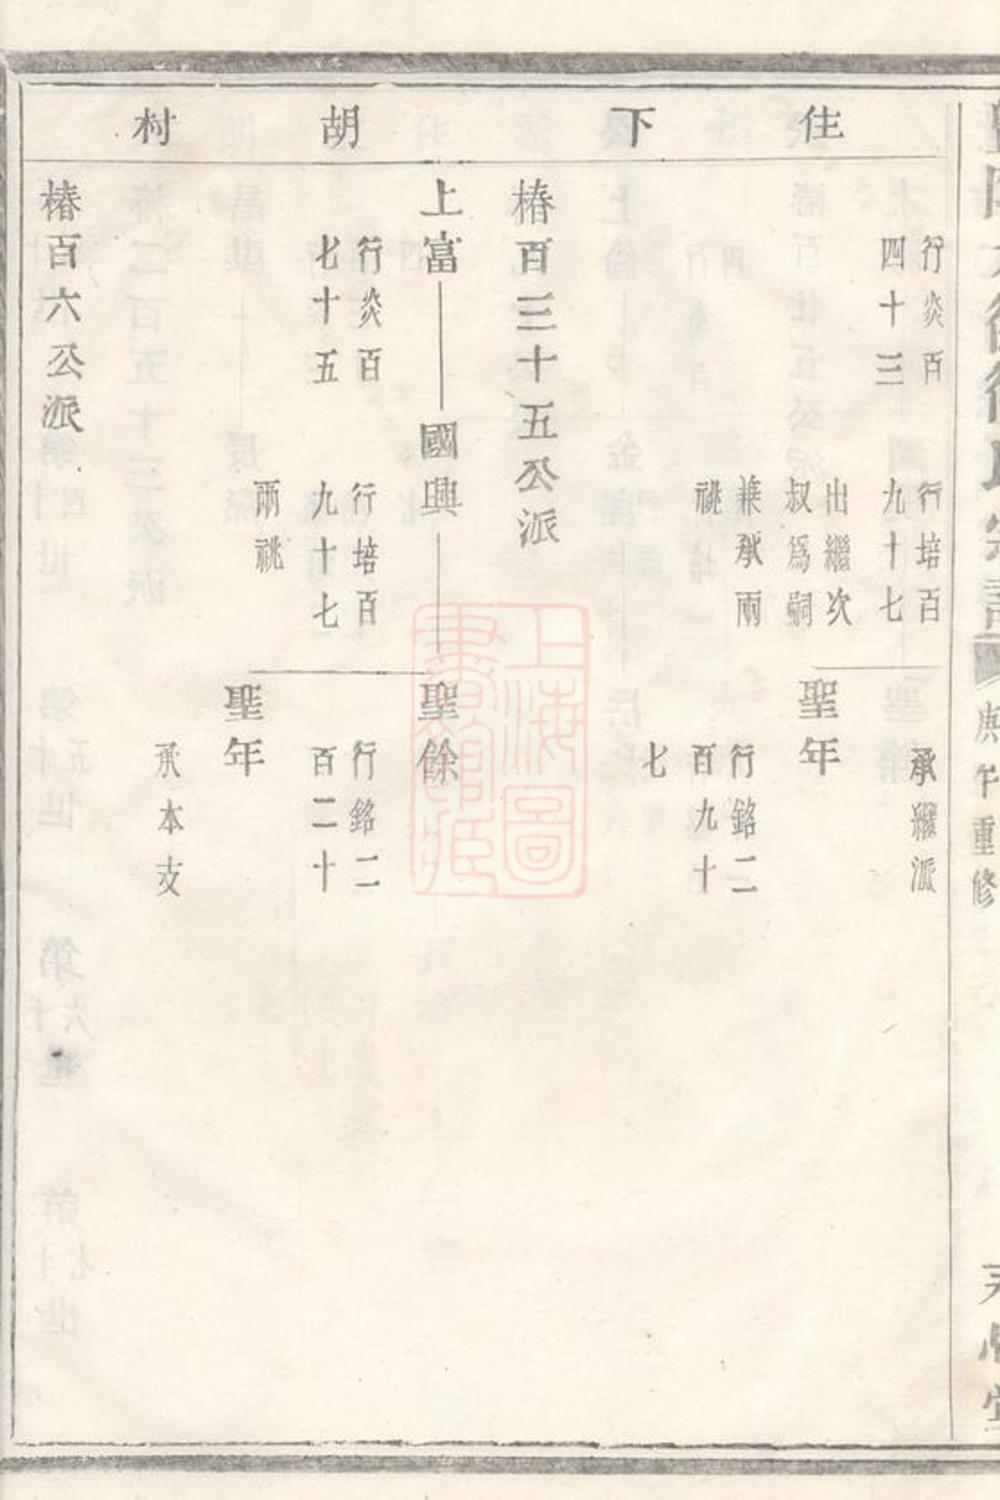 住下胡村
行炎百
四十三
行培百
九十七
出繼次
叔爲嗣
兼承兩
祧
聖年
承繼派
行銘二
百九十
七
椿百三十五公派
上富
國興
聖餘
行炎百
七十五
行培百
九十七
兩祧
行銘二
百二十
聖年
承本支
椿百六公派
庚午重修
上海圖書館藏